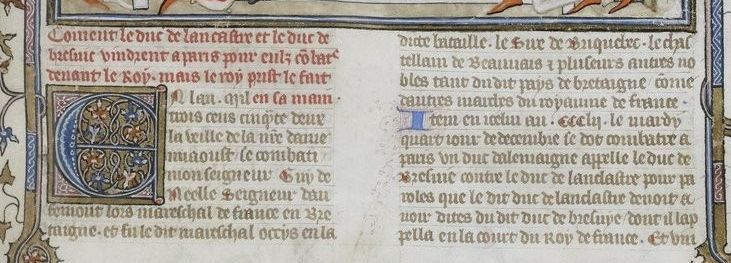 Coment le duc de lancastre et le duc de
bresuic vindrent a paris pour eulz cōbatˢ
devant le Roy. mais le roy prist le fait
en sa main.
En lan. mil
trois cens cinqte deux
la veille de la nr̄e dame
miaoust. se combati
monseigneur Guy de
Neelle Seigneur dau
femont lors mareschal de france en Bre
taigne. et fu le dit mareschal occys en la
dicte bataille. le Sire de Briquebec. le chas
tellain de Beauvais ⁊ plusieurs autres no
bles tant du dit pays de bretaigne cōme
dautres marches du royaume de france.
Item en icelui an. CCCLII. le mardy
quart iour de decembre se dot combatre a
paris un duc dalemaigne appelle le duc de
Bresuic contre le duc de lanclastre pour pa
roles que le dit duc de lanclastre devoit a
uoir dites du dit duc de bresuyc dont il lap
pella en la court du Roy de france. Et vin